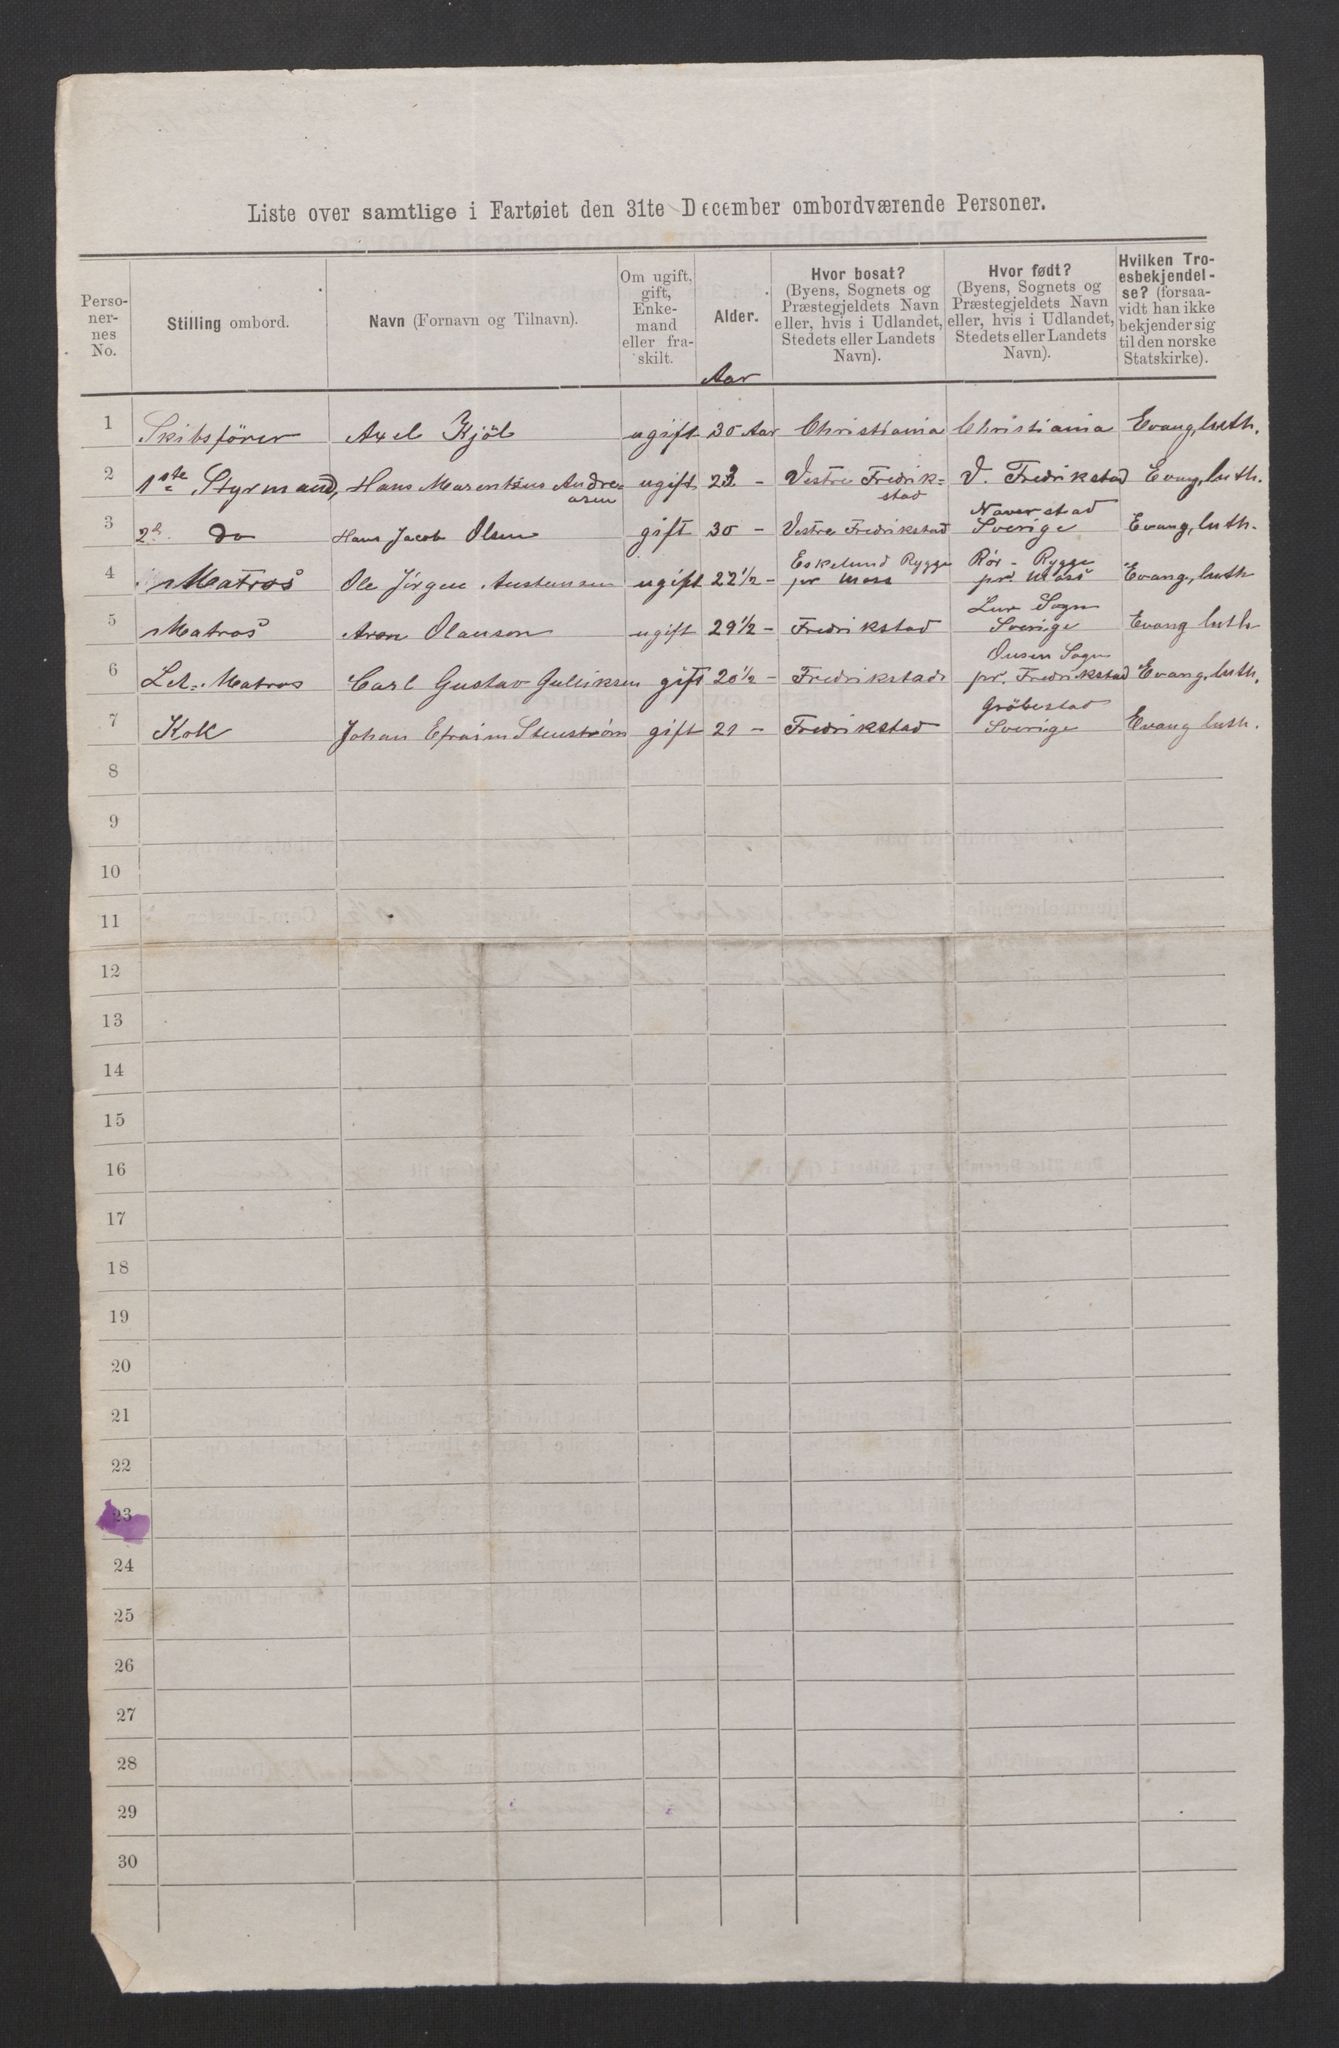 Liste over samtlige i Fartøiet den 31te December ombordværende Personer.
Perso-
ner-
nes
No.
Stilling ombord.
Navn (Fornavn og Tilnavn).
Om ugift,
gift,
Enke-
mand
eller fra-
skilt.
Alder.
Aar
Hvor bosat?
(Byens, Sognets og
Præstegjeldets Navn
eller, hvis i Udlandet,
Stedets eller Landets
Navn).
Hvor født?
(Byens, Sognets og
Præstegjeldets Navn
eller, hvis i Udlandet,
Stedets eller Landets
Navn).
Hvilken Tro-
esbekjendel-
se? (forsaa-
vidt han ikke
bekjender sig
til den norske
Statskirke).
1 Skibsfører Axel Kjöl ugift 30 Aar Christiania Christiania Evang, luth.
2 1ste Styrmand, Hans Marentius Andre= ugift 23 - Vestre Fredrik= V. Fredrikstad Evang, luth.
asen stad
Naverstad
3 2d do Hans Jacob Olsen gift 30 - Vestre Fredrikstad Sverige Evang, luth.
Eskelund Rygge Rör - Rygge
4 Matros Ole Jörgen Austensen ugift 22 1/2 - pr Moss pr Moss Evang, luth
Lur Sogn
5 Matros Aron Olauson ugift 29 1/2 - Fredrikstad Sverige Evang luth
Onsøn Sogn
6 Let. Matros Carl Gustav Gulliksen gift 20 1/2 - Fredrikstad pr. Fredrikstad Evang, luth.
Gröbestad
7 Kok Johan Efraim Stenström gift 21 - Fredrikstad Sverige Evang luth.
8
9
10
11
12
13
14
15
16
17
18
19
20
21
22
23
24
25
26
27
28
29
30